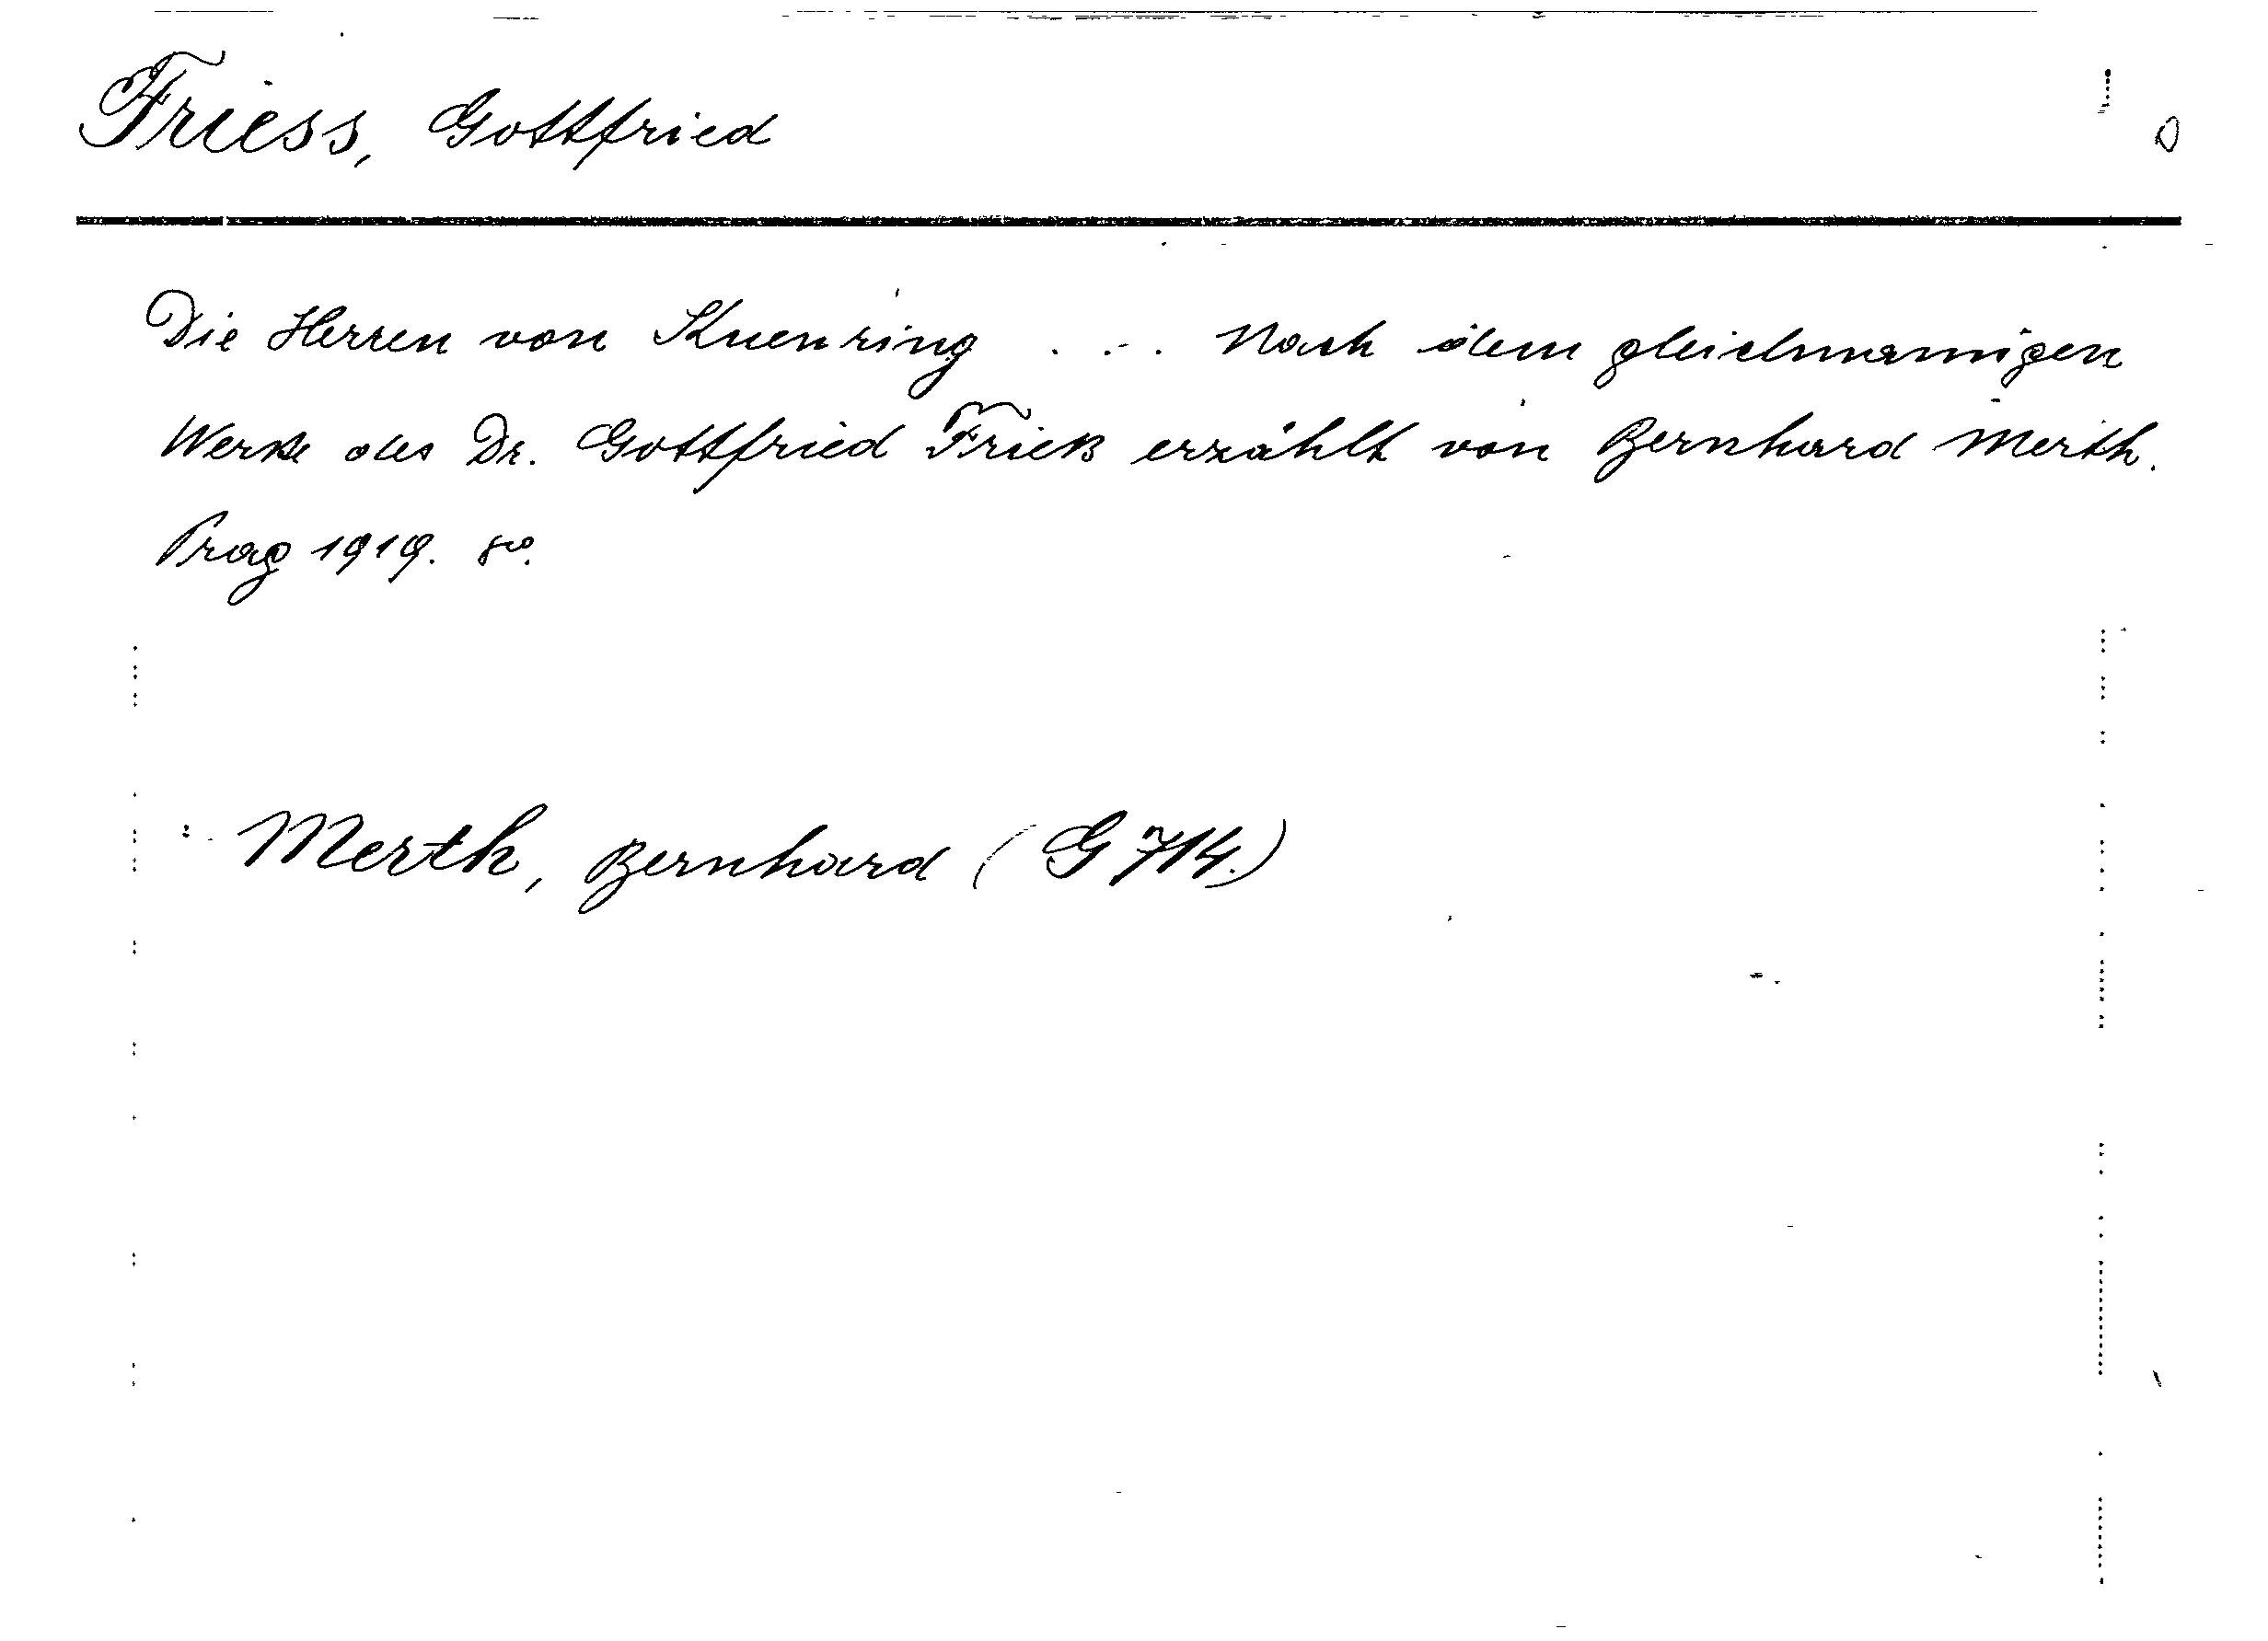 Friess, Gottfried
Die Herren von Kuenring . . . Nach dem gleichnamigen
Werke des Dr. Gottfried Frieß erzählt von Bernhard Merth.
Prag 1919. 8o.
Merth, Bernhard (G 714.)